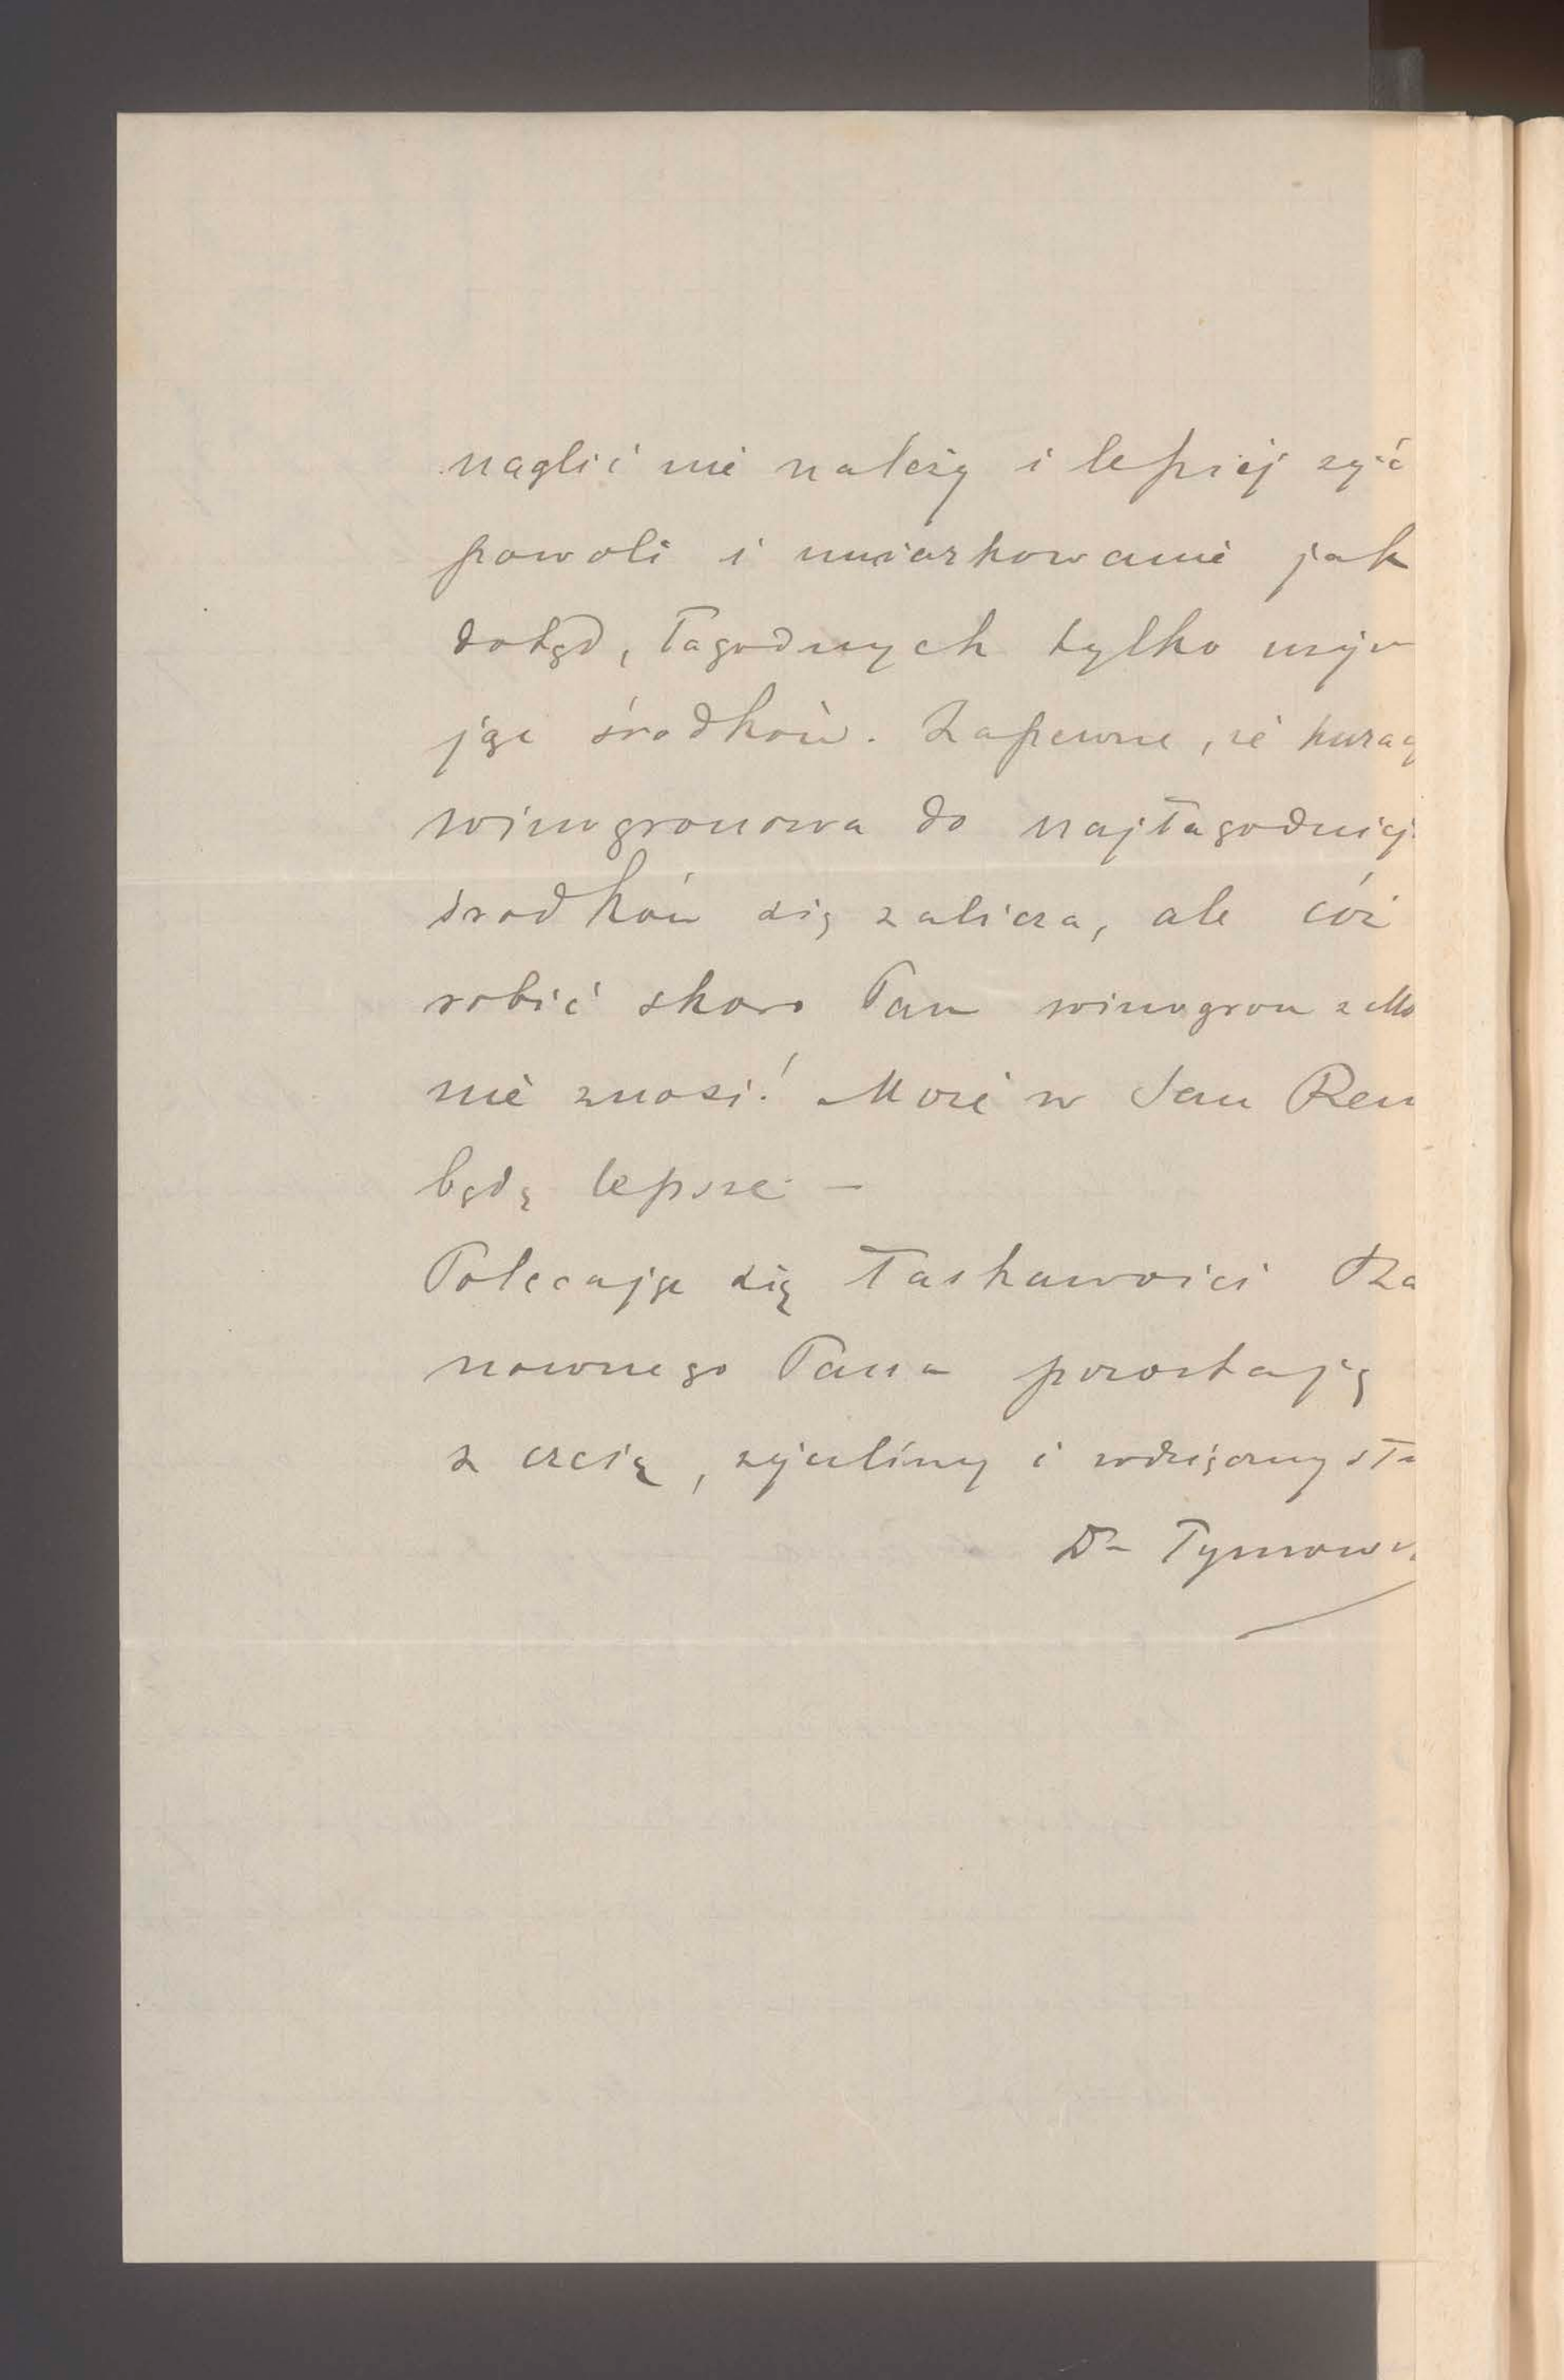 naglić nie należy i lepiej żyć
powoli i umiarkowanie jak
dotąd, łagodnych tylko używ
jąc środków. Zapewne, że kurac
winogronowa do najłagodniej
środków się zalicza, ale cóż
robić skoro Pan winogron z Mo
nie znosi! Może w San Rem
będą lepsze –
Polecając się łaskawości Sza
nownego Pana pozostaję
z czcią, życzliwy i wdzięczny sł
Dr Tymows